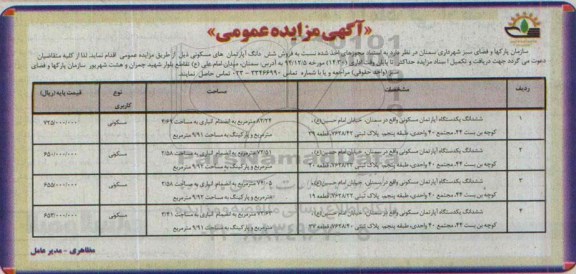 «آگهی مزایده عمومی»
سازمان پارکها و فضای سبز شهرداری سمنان در نظر دارد به استناد مجوزهای اخذ شده نسبت به فروش شش دانگ آپارتمان های مسکونی ذیل از طریق مزایده عمومی اقدام نماید. لذا از کلیه متقاضیان
دعوت می گردد جهت دریافت و تکمیل اسناد مزایده حداکثر تا پایان وقت اداری (۱۴:۳۰) مورخه ۹۳/۱۲/۵ به آدرس: سمنان، میدان امام علی (ع) تقاطع بلوار شهید چمران و هشت شهریور سازمان پارکها و فضای
سبز (واحد حقوقی) مراجعه و یا با شماره تماس ۳۳۴۶۶۹۹۰ - ۰۲۳ تماس حاصل نمایند.
ردیف مشخصات مساحت نوع کاربری قیمت پایه (ریال)
۱ ششدانگ یکدستگاه آپارتمان مسکونی واقع در سمنان، خیابان امام حسین(ع)، ۸۲/۲۴ مترمربع به انضمام انباری به مساحت ۴/۶۴ مسکونی ۷۲۵/۰۰۰/۰۰۰
کوچه بن بست ۴۴، مجتمع ۴۰ واحدی، طبقه پنجم، پلاک ثبتی ۷۶۲۸/۴۲، قطعه ۳۹ مترمربع و پارکینگ به مساحت ۹/۹۲ مترمربع
۲ ششدانگ یکدستگاه آپارتمان مسکونی واقع در سمنان، خیابان امام حسین(ع)، مترمربع به انضمام انباری به مساحت ۲/۵۸ مسکونی ۶۵۰/۰۰۰/۰۰۰
کوچه بن بست ۴۴، مجتمع ۴۰ واحدی، طبقه پنجم، پلاک ثبتی قطعه مترمربع و پارکینگ به مساحت ۹/۹۱ مترمربع
۳ ششدانگ یکدستگاه آپارتمان مسکونی واقع در سمنان، خیابان امام حسین(ع)، ۷۴/۰۵ مترمربع به انضمام انباری به مساحت ۲/۵۸ مسکونی ۶۵۵/۰۰۰/۰۰۰
کوچه بن بست ۴۴، مجتمع ۴۰ واحدی، طبقه پنجم، پلاک ثبتی قطعه مترمربع و پارکینگ به مساحت ۹/۹۱ مترمربع
۴ ششدانگ یکدستگاه آپارتمان مسکونی واقع در سمنان، خیابان امام حسین(ع)، مترمربع به انضمام انباری به مساحت ۲/۴۱ مسکونی ۶۵۳/۰۰۰/۰۰۰
کوچه بن بست ۴۴، مجتمع ۴۰ واحدی، طبقه پنجم، پلاک ثبتی قطعه مترمربع و پارکینگ به مساحت ۹/۹۱ مترمربع
مظاهری - مدیر عامل